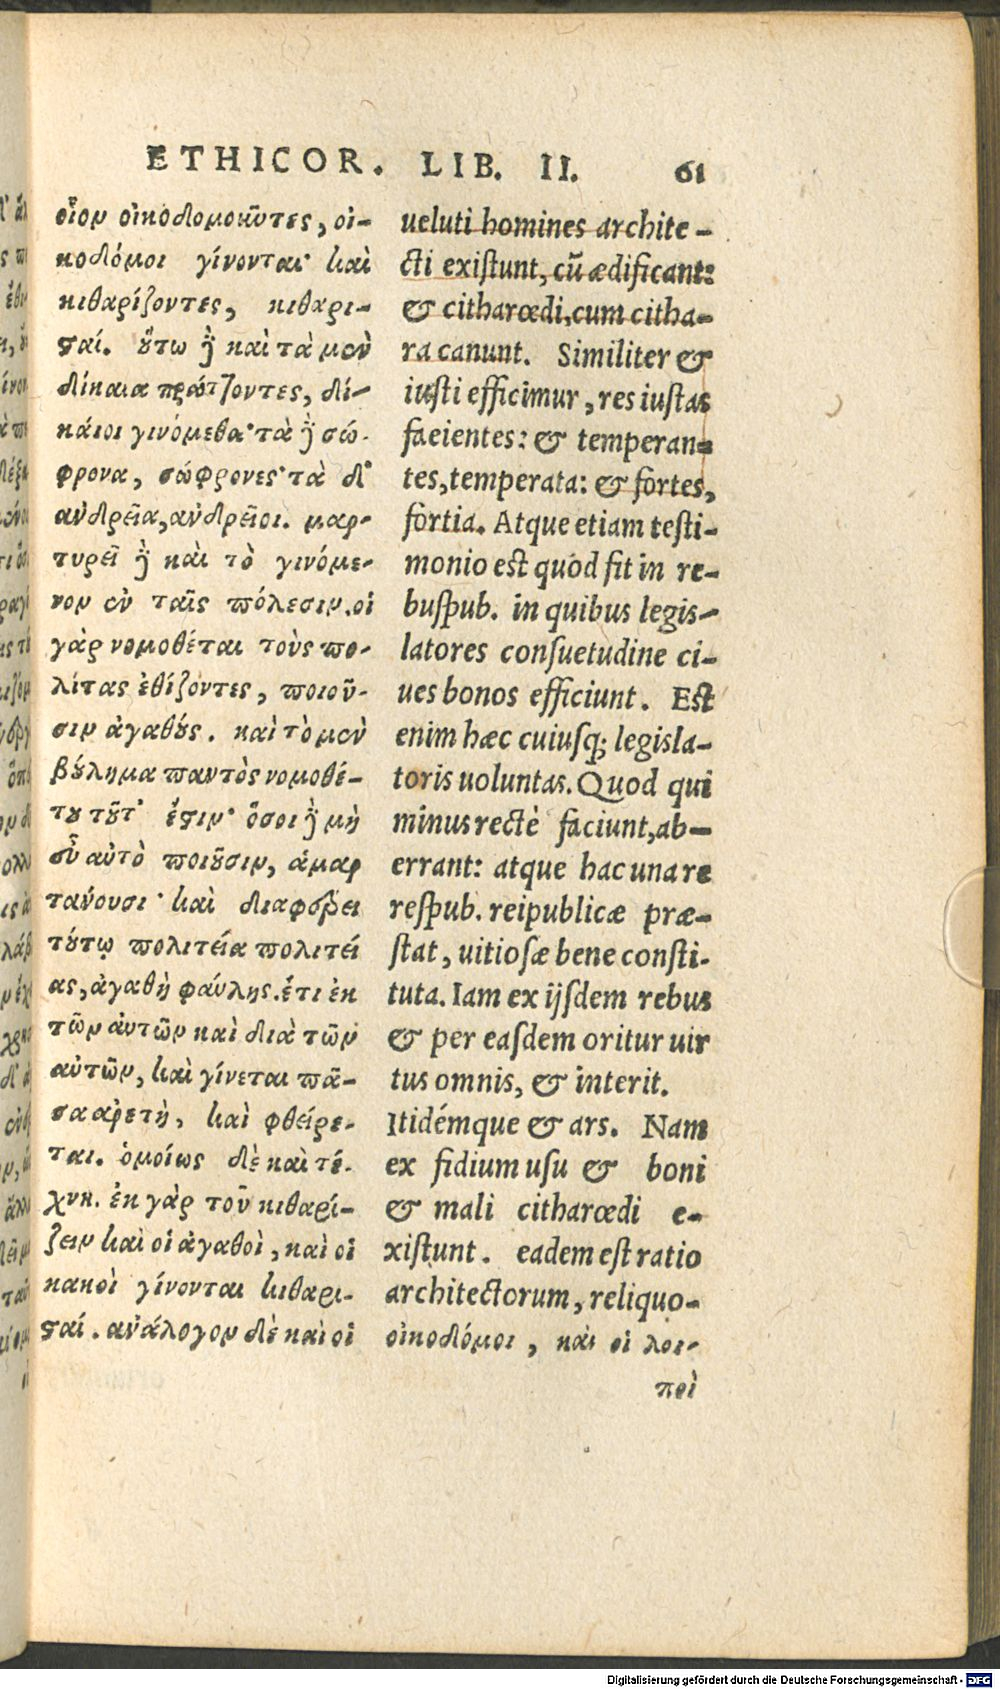 ETHICOR. LIB. II. 61
οἷον οἰκοδομοῦντες, οἰ-
κοδόμοι γίνονται· καὶ
κιθαρίζοντες, κιθαρι-
ϛαί. ȣ̓́τω δὲ καὶ τὰ μὲν
δίκαια πράτζοντες, δί-
καιοι γινόμεθα· τὰ δὲ σώ-
φρονα, σώφρονες· τὰ δ'
ἀνδρεῖα, ἀνδρεῖοι. μαρ-
τυρεῖ δὲ καὶ τὸ γινόμε-
νον ἐν ταῖς πόλεσιν. οἱ
γὰρ νομοθέται τοὺς πο-
λίτας ἐθίζοντες, ποιοῦ-
σιν ἀγαθȣ́ς. καὶ τὸ μὲν
βȣ́λημα παντὸς νομοθέ-
τȣ τȣ͂τ' ἔϛιν· ὅσοι δὲ μὴ
εὖ αὐτὸ ποιȣ͂σιν, ἁμαρ
τάνουσι· καὶ διαφέρει
τȣ́τῳ πολιτεία πολιτεί
ας, ἀγαθὴ φαύλης. ἔτι ἐκ
τῶν ἀυτῶν καὶ διὰ τῶν
αὐτῶν, καὶ γίνεται πᾶ-
σα ἀρετὴ, καὶ φθείρε-
ται. ὁμοίως δὲ καὶ τέ-
χνη. ἐκ γὰρ τοῦ κιθαρί-
ζειν καὶ οἱ ἀγαθοὶ, καὶ οἱ
κακοὶ γίνονται κιθαρι-
ϛαί. ἀνάλογον δὲ καὶ οἱ
ueluti homines archite-
cti existunt, cũ ædificant:
& citharœdi, cum citha-
ra canunt. Similiter &
iusti efficimur, res iustas
faeientes: & temperan-
tes, temperata: & fortes,
fortia. Atque etiam testi-
monio est quòd fit in re-
buspub. in quibus legis-
latores consuetudine ci-
ues bonos efficiunt. Est
enim hæc cuiusq; legisla-
toris uoluntas. Quod qui
minus rectè faciunt, ab-
errant: atque hac una re
respub. reipublicæ præ-
stat, uitiosæ bene consti-
tuta. Iam ex ijsdem rebus
& per easdem oritur uir
tus omnis, & interit.
Itidémque & ars. Nam
ex fidium usu & boni
& mali citharœdi e-
xistunt. eadem est ratio
architectorum, reliquo-
οἰκοδόμοι, καὶ οἱ λοι-
ποὶ
Digitalisierung gefördert durch die Deutsche Forschungsgemeinschaft - DFG